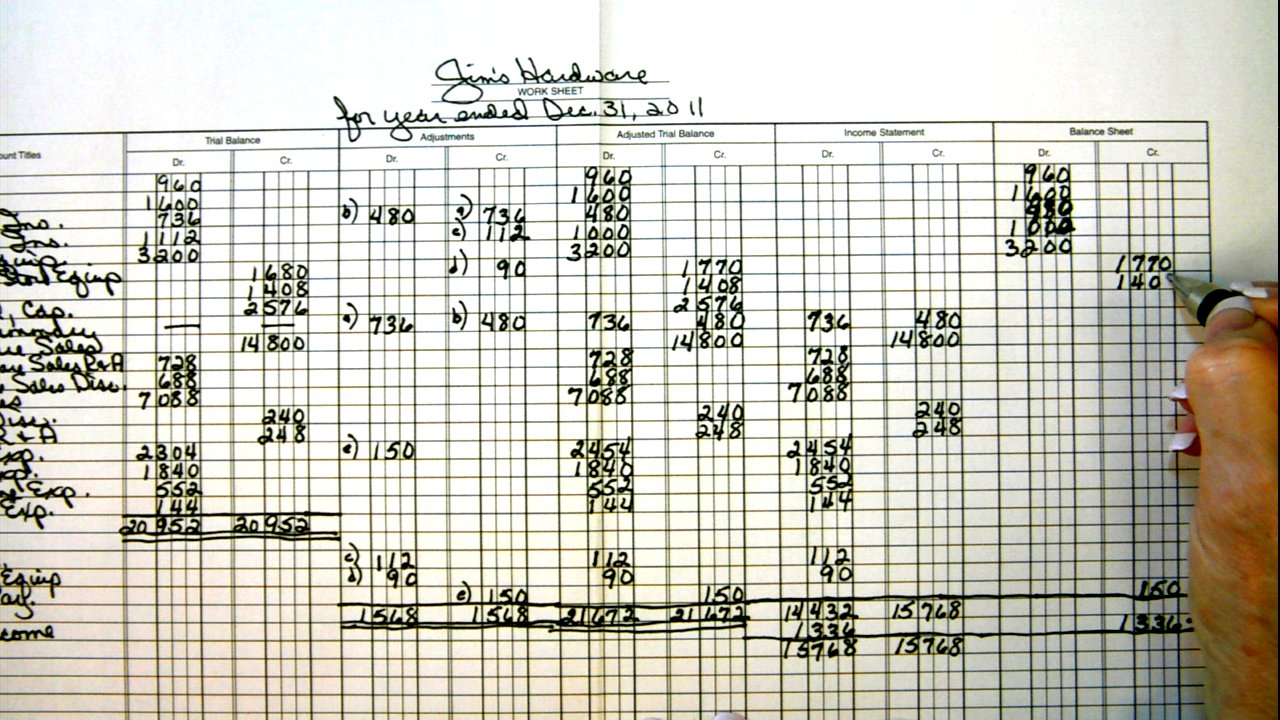 Jim's Hardware
WORK SHEET
for year ended Dec. 31, 2011
Trial Balance Adjustments Adjusted Trial Balance Income Statement Balance Sheet
unt Titles Dr. Cr. Dr. Cr. Dr. Cr. Dr. Cr. Dr. Cr.
960 960 960
1600 1600 1600
Inv. 736 b) 480 a) 736 480
Ins. 1112 c) 112 1000 1000
uip. 3200 3200 3200
Store Equip 1680 d) 90 1770 1770
1408 1408 140
, Cap. 2576 2576
— — a) 736 b) 480 736 480 736 480
Sales 14800 14800 14800
Sales R&A 728 728 728
Sales Disc. 688 688 688
es 7088 7088 7088
Disc. 240 240 240
R & A 248 248 248
Exp. 2304 e) 150 2454 2454
xp. 1840 1840 1840
Exp. 552 552 552
Exp. 144 144 144
20952 20952
c) 112 112 112
Equip d) 90 90 90
ay. e) 150 150 150
1568 1568 21672 21672 14432 15768
come 1336 1336
15768 15768